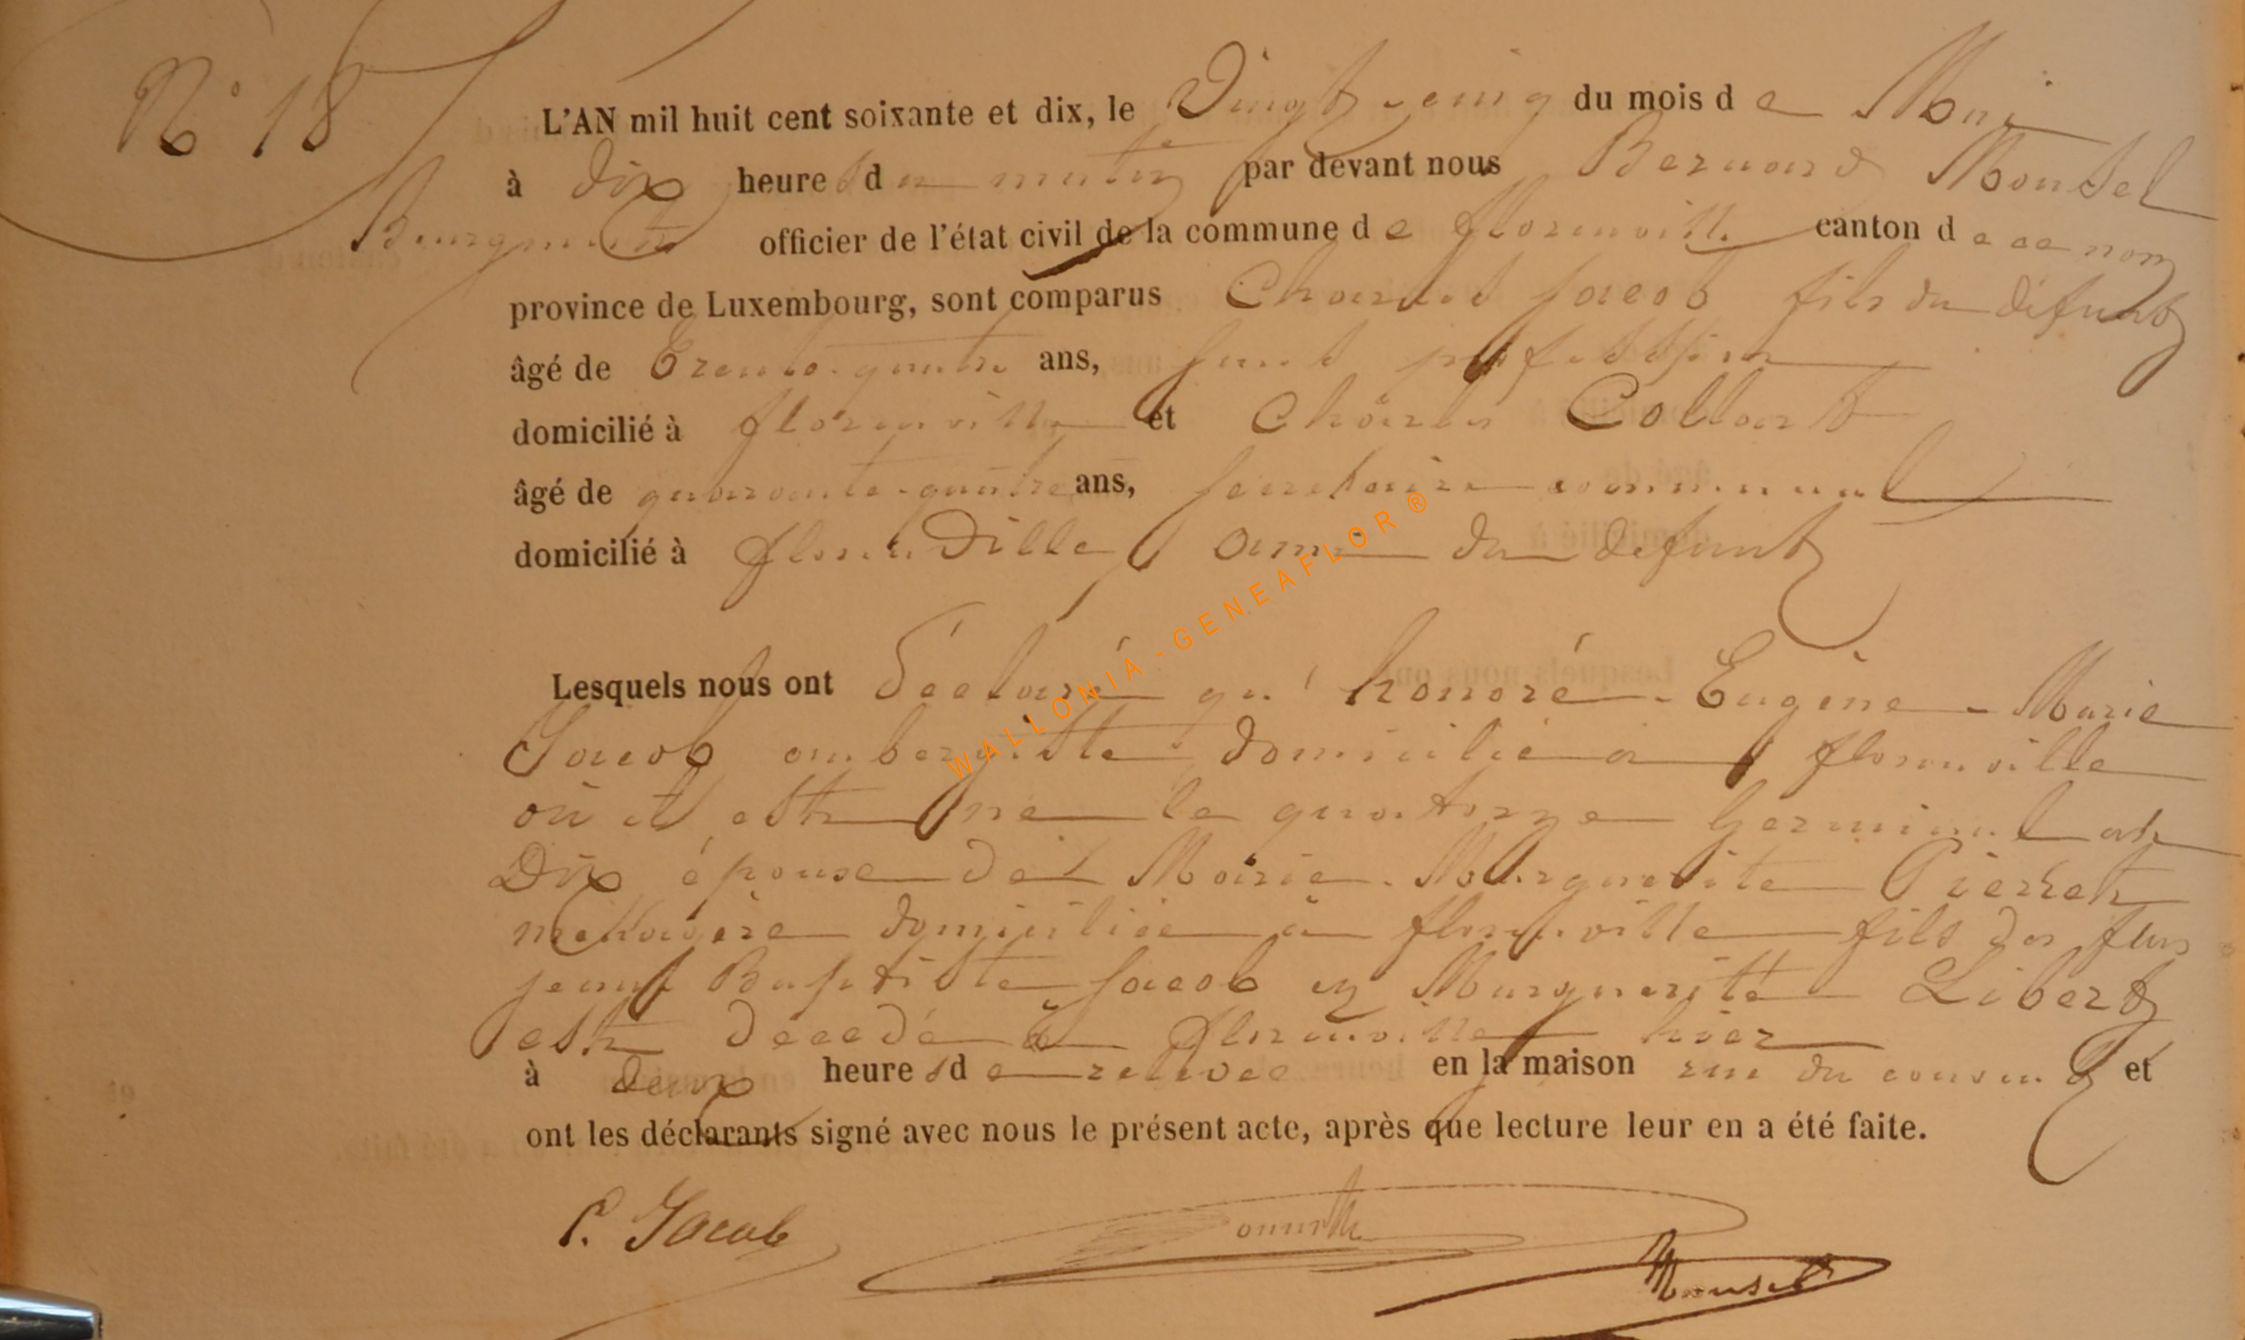 N° 18
L'AN mil huit cent soixante et dix, le Vingt-cinq du mois de Mai
à dix heures du matin par devant nous Bernard Monsel
Bourgmestre officier de l'état civil de la commune de florenville canton de ce nom
province de Luxembourg, sont comparus Charles Jacob fils du défunt
âgé de trente-quatre ans, sans profession
domicilié à florenville et Charles Collart
âgé de quarante-quatre ans, secrétaire communal
domicilié à florenville ami du défunt
Lesquels nous ont déclaré qu'honoré-Eugène-Marie
Jacob aubergiste domicilié à florenville
où il est né le quatorze Germinal an
Dix épouse de Marie-Marguerite Pierret
ménagère domiciliée à florenville fils des feus
jean Baptiste Jacob et Marguerite Libert
est décédé à florenville hier
à deux heures de relevée en la maison rue du couvent et
ont les déclarants signé avec nous le présent acte, après que lecture leur en a été faite.
C. Jacob
Monsel
WALLONIA-GENEAFLOR®